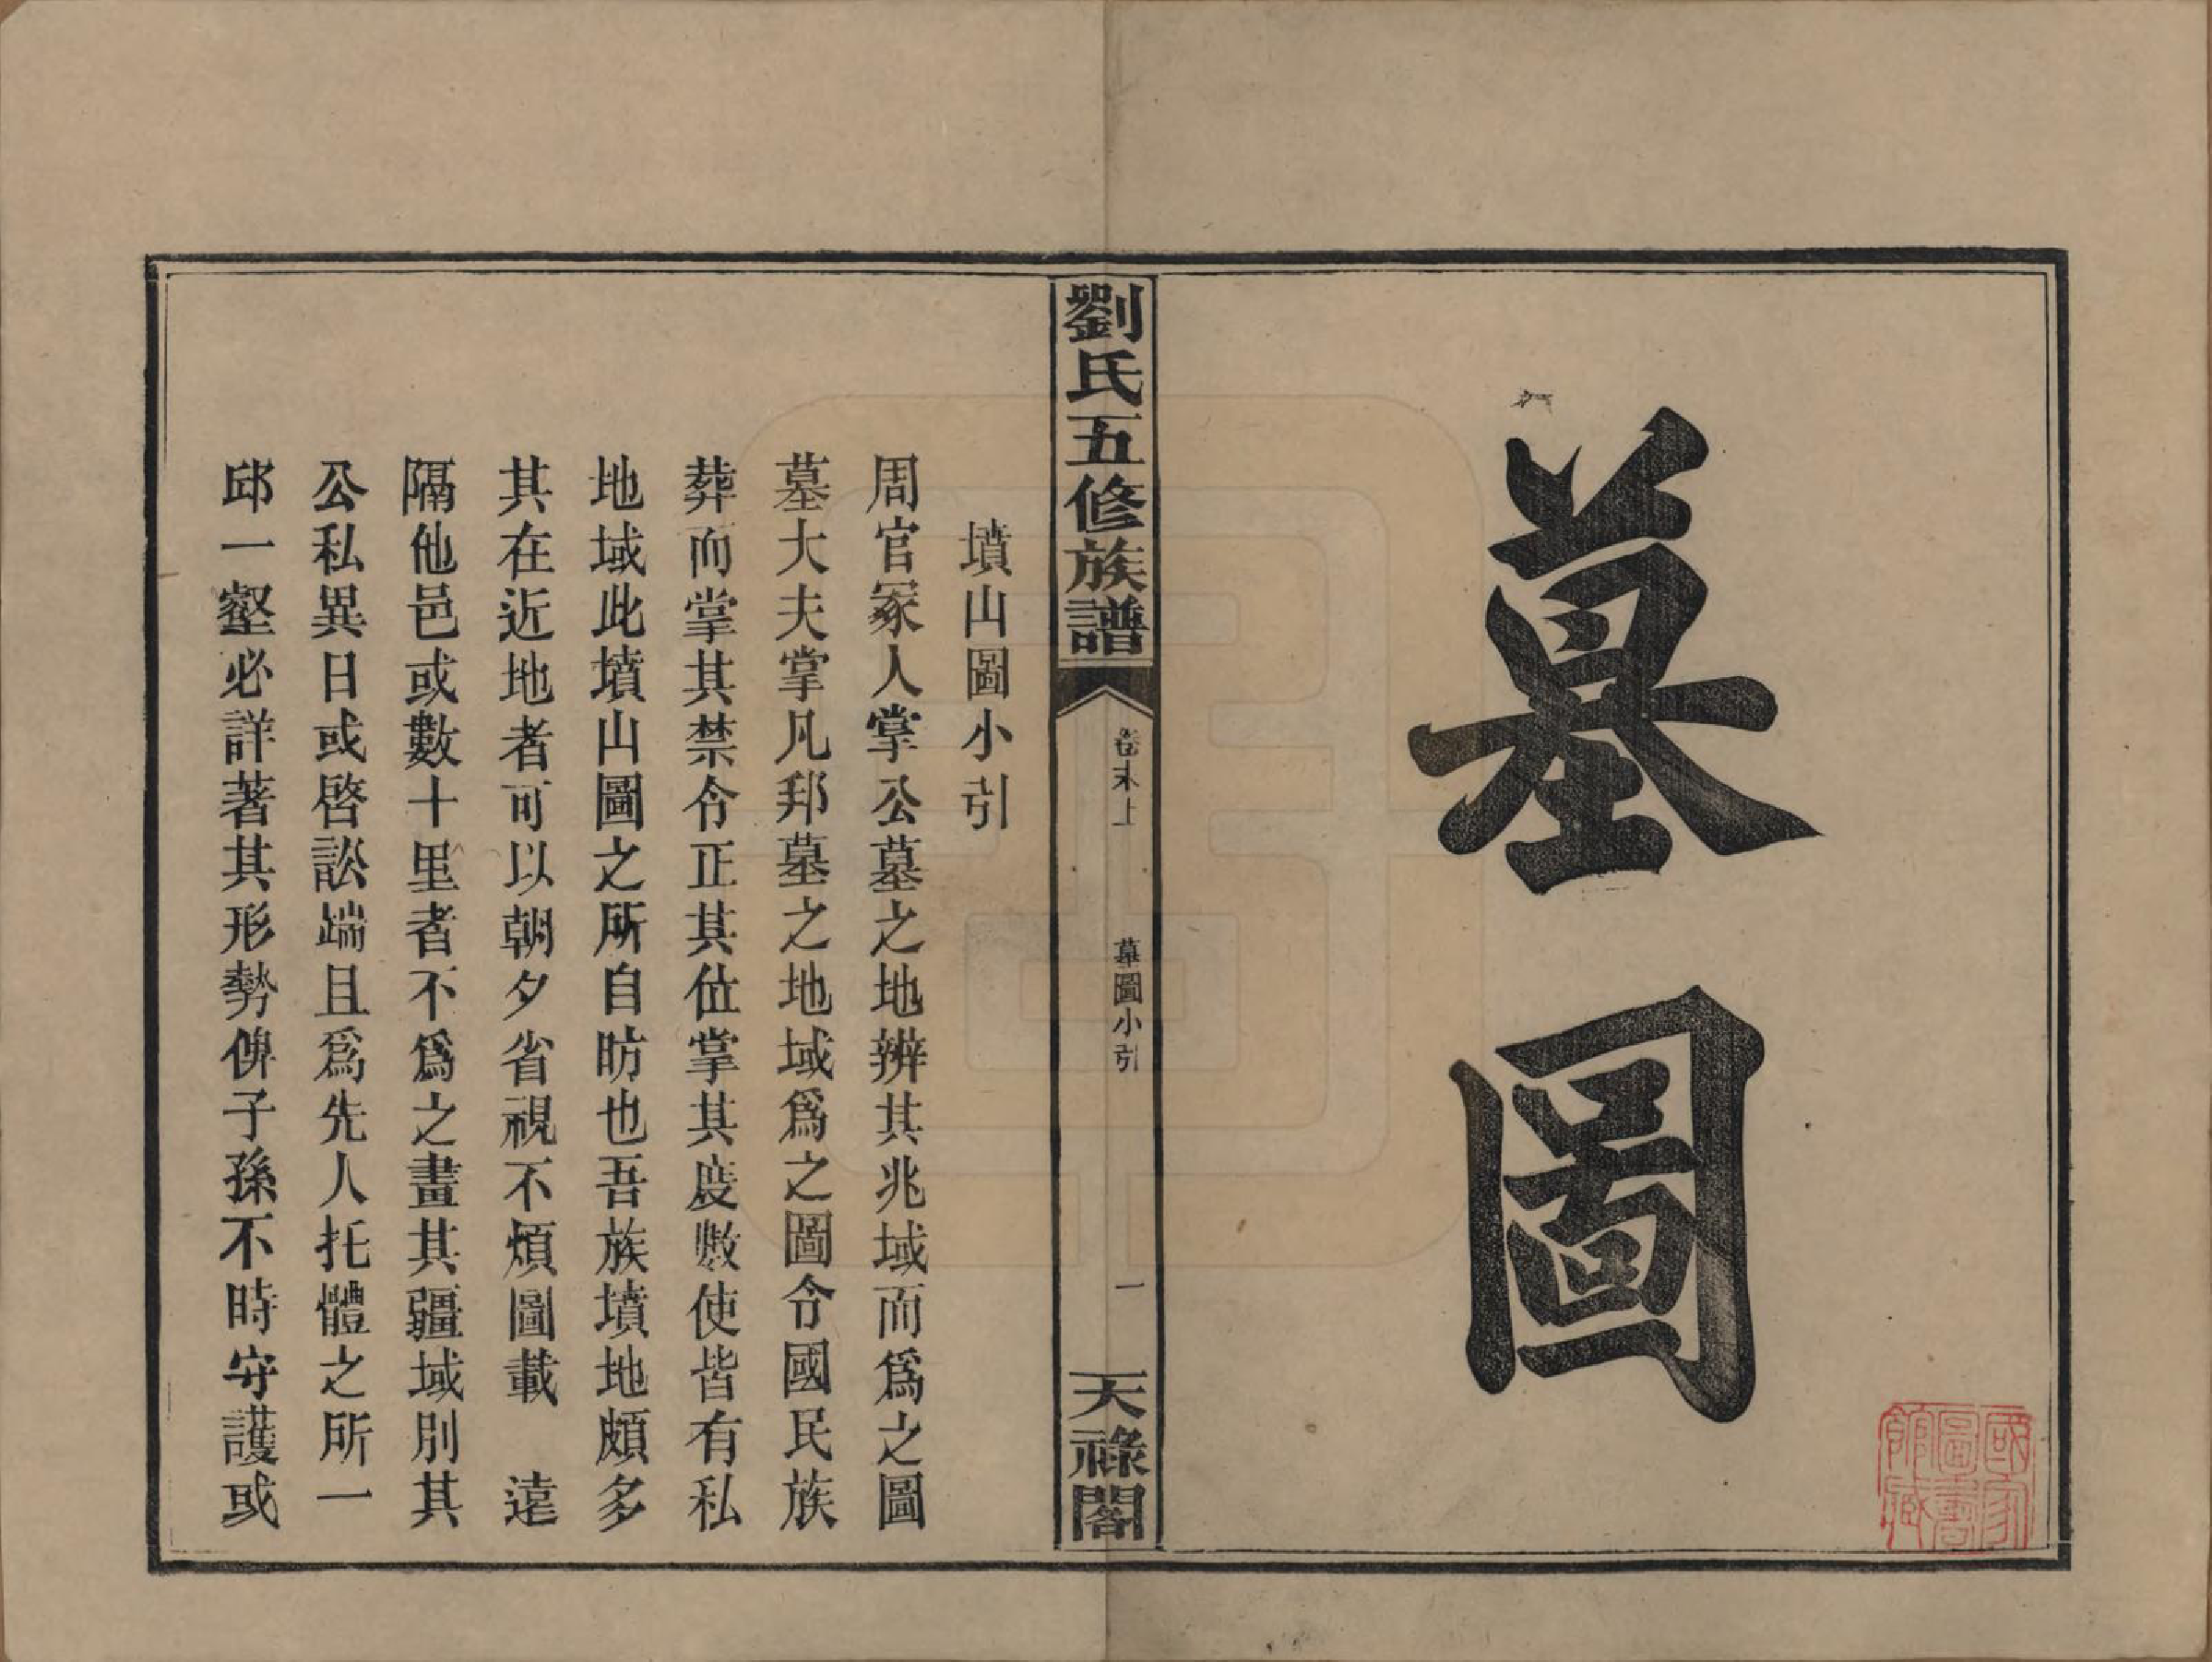 墓圖
國家
圖書
館藏
劉氏五修族譜
卷末上
墓圖小引
一
天祿閣
墳山圖小引
周官冢人掌公墓之地辨其兆域而爲之圖
墓大夫掌凡邦墓之地域爲之圖令國民族
葬而掌其禁令正其位掌其度數使皆有私
地域此墳山圖之所自昉也吾族墳地頗多
其在近地者可以朝夕省視不煩圖載　遠
隔他邑或數十里者不爲之畫其疆域別其
公私異日或啓訟端且爲先人托體之所一
邱一壑必詳著其形勢俾子孫不時守護或